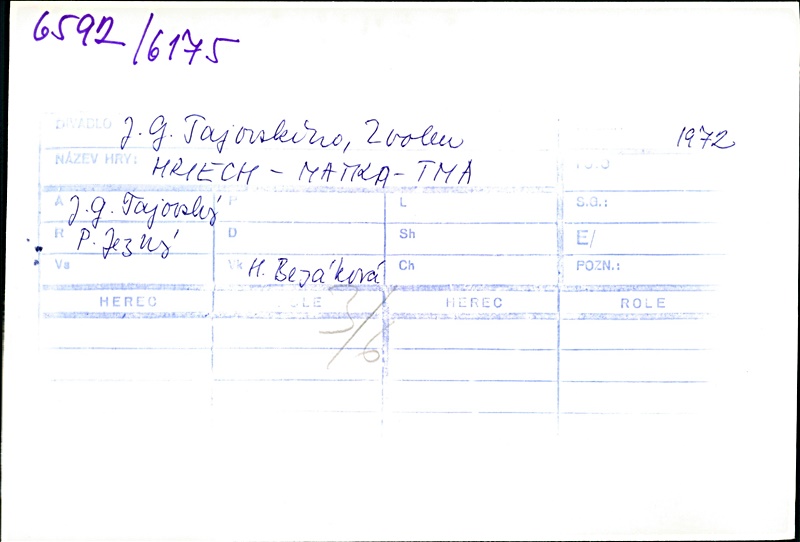 6592/6175
DIVADLO J. G. Tajovského, Zvolen 1972
NÁZEV HRY: HRIECH - MATKA - TMA
A J. G. Tajovský P L S.G.:
R P. Jezný D Sh E/
Vk H. Bezáková Ch POZN.:
HEREC ROLE HEREC ROLE
3/6